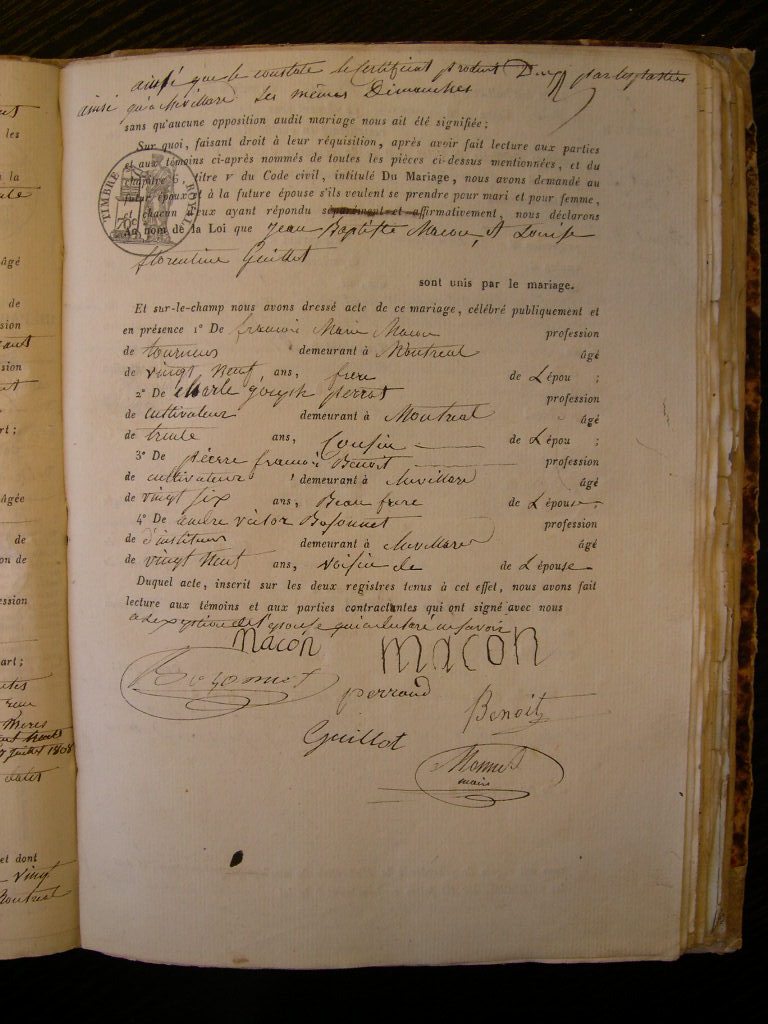 ainsi que le constate le Certificat produit par les parties
ainsi qu'a Nivillard Les mêmes Dimanches
sans qu'aucune opposition audit mariage nous ait été signifiée;
Sur quoi, faisant droit à leur réquisition, après avoir fait lecture aux parties
et aux témoins ci-après nommés de toutes les pièces ci-dessus mentionnées, et du
chapitre 6, titre v du Code civil, intitulé Du Mariage, nous avons demandé au
futur époux et à la future épouse s'ils veulent se prendre pour mari et pour femme,
chacun d'eux ayant répondu séparément et affirmativement, nous déclarons
Au nom de la Loi que Jean Baptiste Macon, et Louise
florentine Guillot
sont unis par le mariage.
Et sur-le-champ nous avons dressé acte de ce mariage, célébré publiquement et
en présence 1º De françois Marie Macon profession
de tourneur demeurant à Montreal âgé
de vingt neuf ans, frere de L épou ;
2º De Charle perrot profession
de cultivateur demeurant à Montreal âgé
de trente ans, Cousin de L épou ;
3º De pierre françoi Benoit profession
de cultivateur demeurant à âgé
de vingt six ans, Beau frere de L épouse
4º De andre victor Bozonnet profession
de d'instituteur demeurant à âgé
de vingt neuf ans, voisin de de L épouse
Duquel acte, inscrit sur les deux registres tenus à cet effet, nous avons fait
lecture aux témoins et aux parties contractantes qui ont signé avec nous
a lexception de l'epouse qui a declaré ne savoir
macon macon
Bozonnet perraud Benoit
Guillot
Monnet
maire
TIMBRE ROYAL